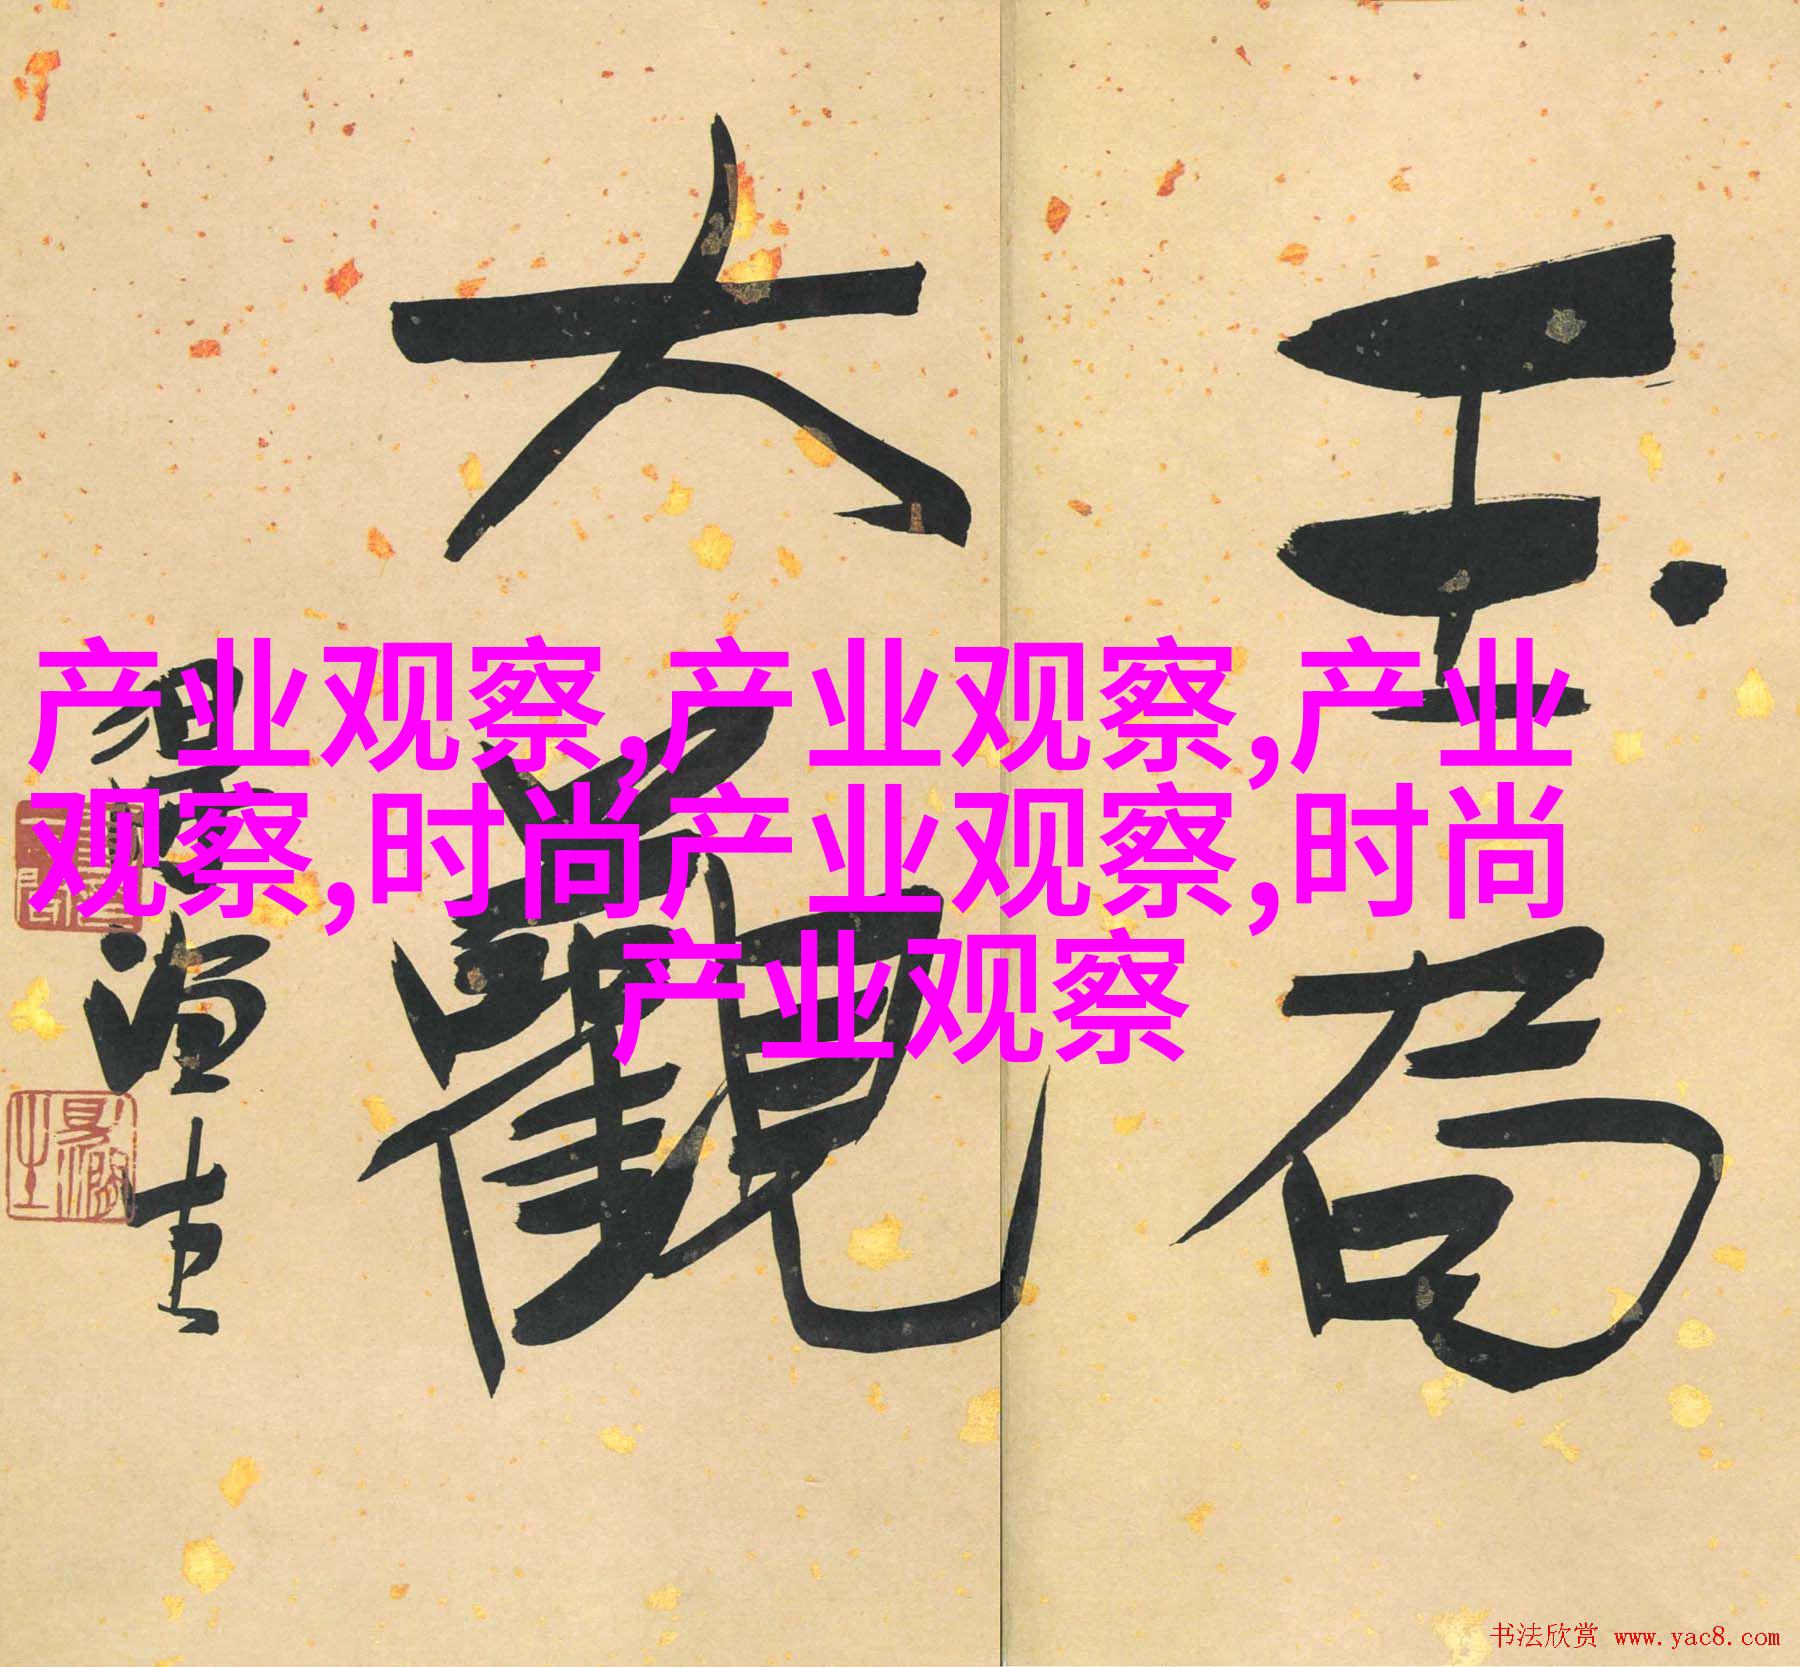 产业观察,产业观察,产业
观察,时尚产业观察,时尚
产业观察
玉局
大觀
书法欣赏 www.yac8.com